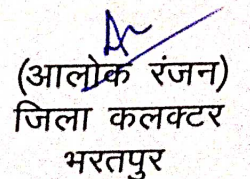 (आलोक रंजन)
जिला कलक्टर
भरतपुर